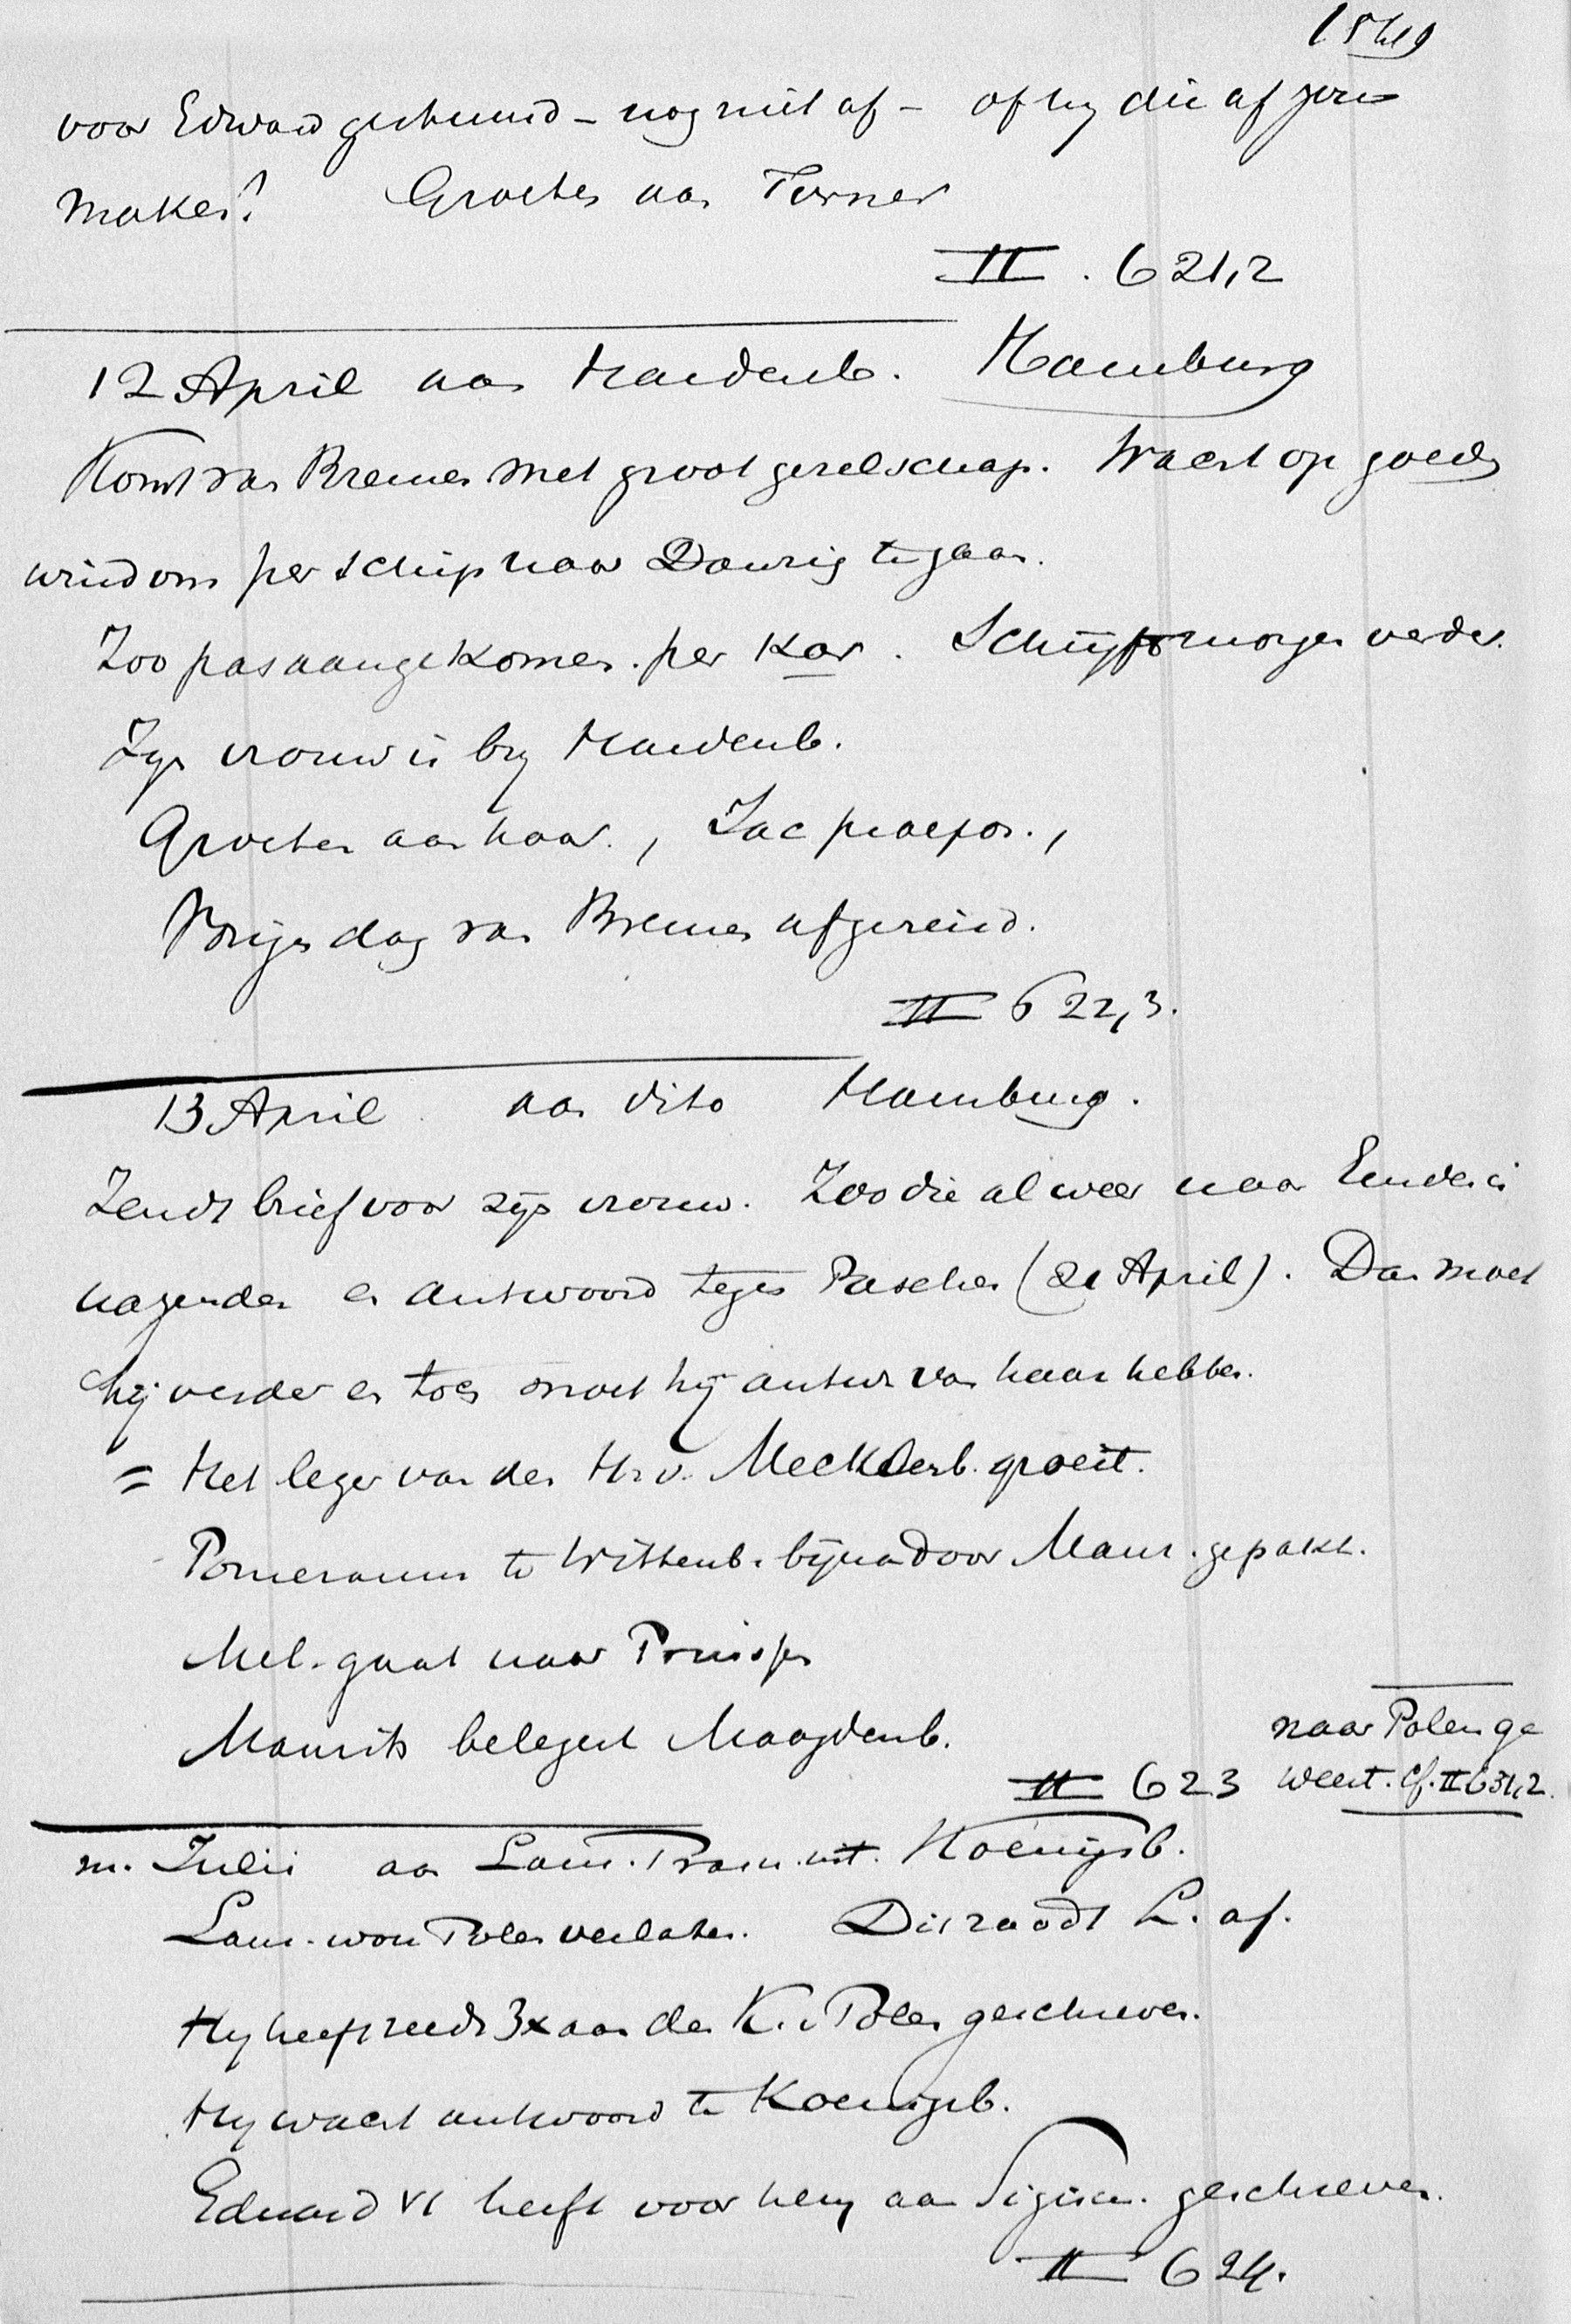 1549
voor Edward gestuurd - nog niet af - of hy die af zou
maken? Groeten aan Turner
II. 621,2
12 April aan Hardenb. Hamburg
Komt van Bremen met groot gezelschap. Wacht op goede
wind om per schip naar Danzig te gaan.
Zoo pas aangekomen. per kar. Schrijft morgen verder.
Zyn vrouw is by Hardenb.
Groeten aan haar., Jac praepos.,
Vrijdag van Bremen afgereisd.
II 622,3.
13 April aan dito Hamburg.
Zendt brief voor zijn vrouw. Zoo die al weer naar Emden is
nazenden en antwoord tegen Paschen (21 April). Dan moet
hij verder en toch moet hij antw. van haar hebben.
= Het leger van den H. v. Mecklenb. groeit.
Pomeranus te Wittenb. bijna door Maur. gepakt.
Mel. gaat naar Pruisen
Maurits belegert Maagdenb.
naar Polen ge
II 623 weest. Cf. II 631,2.
m. Julii aan Laur. Pran. uit. Koenigsb.
Laur. wou Polen verlaten. Dit raadt L. af.
Hy heeft reeds 3x aan den K. v. Polen geschreven.
Hy wacht antwoord te Koenigsb.
Eduard VI heeft voor hem aan Sigism. geschreven.
II 624.